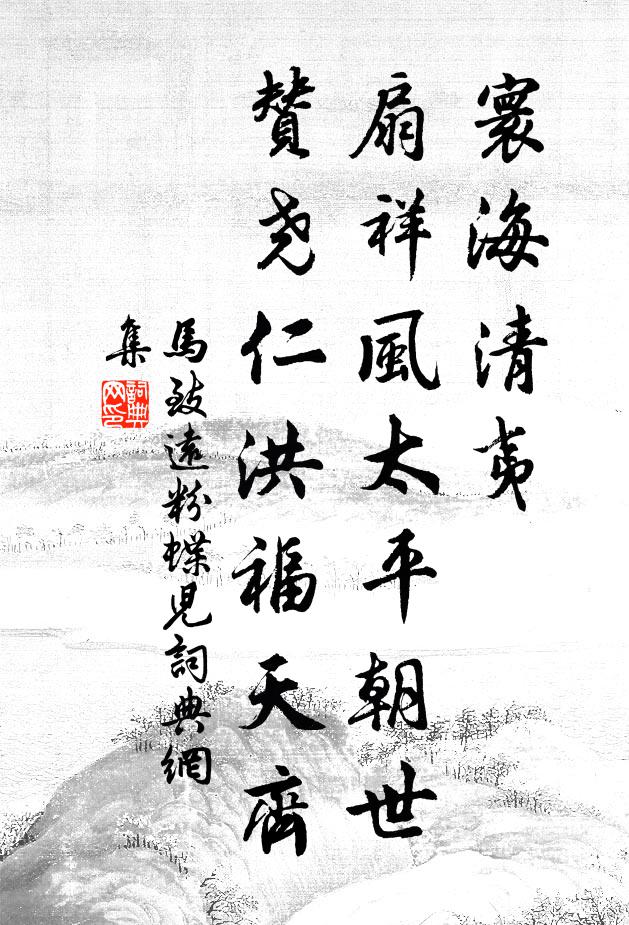 寰海清夷
扇祥風太平朝世
贊堯仁洪福天齊
馬致遠粉蝶兒詞典網
集
詞典
网印